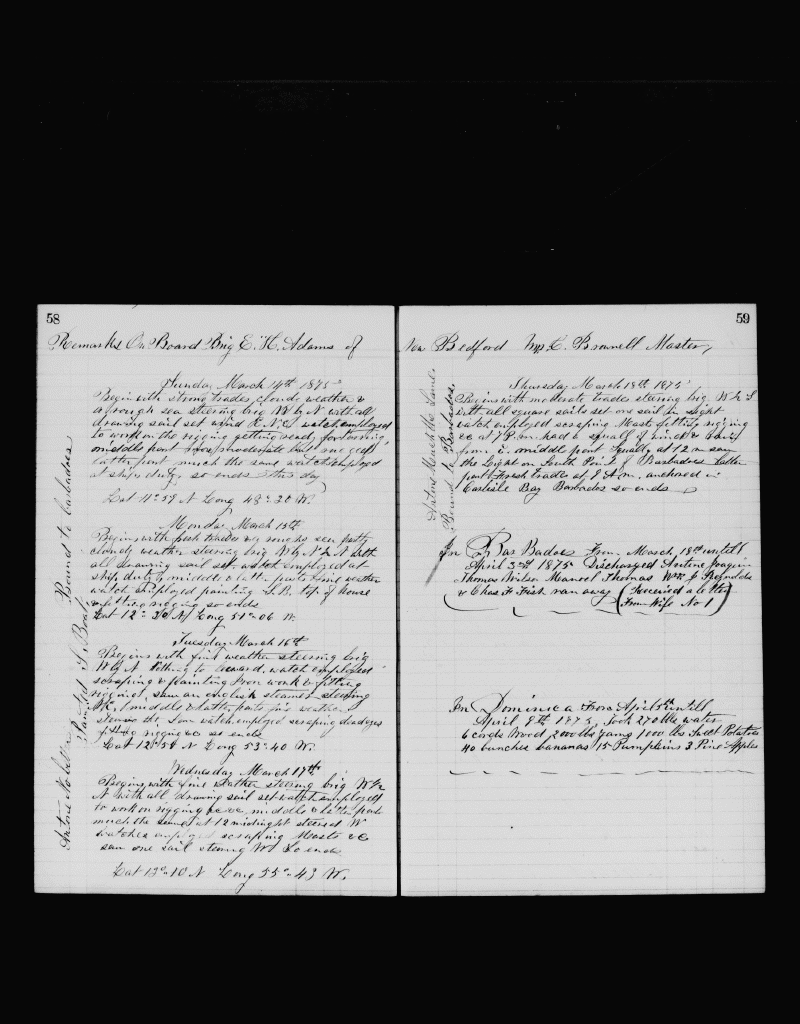 58
Remarks On Board Brig E. H. Adams of
Sunday March 14th 1875
Begin with strong trades cloudy weather &
a rough sea steering brig W by N with all
drawing sail set wind E.N.E. watch employed
to work on the rigging getting ready for
middle part more moderate but rugged
latter part much the same watch employed
at ships duty so ends this day
Lat 11° 59 N Long 48° 30 W.
Monday March 15th
Begins with fresh trades & rough sea partly
cloudy weather steering brig W by N & N with
all drawing sail set watch employed at
ship duty middle & latter parts fine weather
watch employed painting top of house
& fitting rigging so ends
Lat 12° 30 N Long 51° 06 W.
Tuesday March 16th
Begins with fine weather steering brig
W by N nothing to watch employed
scraping & painting Iron work & fitting
rigging, saw an english steamer steering
middle & latter parts fine weather
steering watch employed scraping
rigging so ends
Lat 12° 54 N Long 53° 40 W.
Wednesday March 17th
Begins with fine weather steering brig W by
N with all drawing sail set watch employed
to work on rigging &c &c middle & latter part
much the same at 12 midnight steered W
watches employed scraping Masts &c
saw one sail steering W. So ends
Lat 13° 10 N Long 55° 43 W.
Bound to barbadoes
59
New Bedford Brownell Master,
Thursday March 18th 1875
Begins with moderate trades steering brig W
with all square sails set one sail in sight
watch employed scraping Masts fitting rigging
&c at 7 P.m. had a squall of wind & rain
from E. middle part squally at 12 m saw
the Light on South Point of Barbadoes latter
part fresh trades at 8 A.m. anchored in
Carlisle Bay Barbados so ends
Bound to Barbadoes.
In Bar Badoes From March 18th untill
April 3rd 1875 Discharged Antine Joaquin
Thomas Wilson Manuel Thomas Wm Reynolds
& Chas H Fish ran away (Received a letter
From Wife No 1)
In Dominica From April 5th untill
April 8th 1875, Took 270 bbls water
6 cords Wood 2000 lbs Yams 1000 lbs Sweet Potatoes
40 bunches bananas 15 Pumpkins 3 Pine Apples